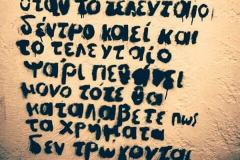 όταν το τελευταίο
δέντρο καεί και
το τελευταίο
ψάρι πεθάνει
μόνο τότε θα
καταλάβετε πως
τα χρήματα
δεν τρώγονται